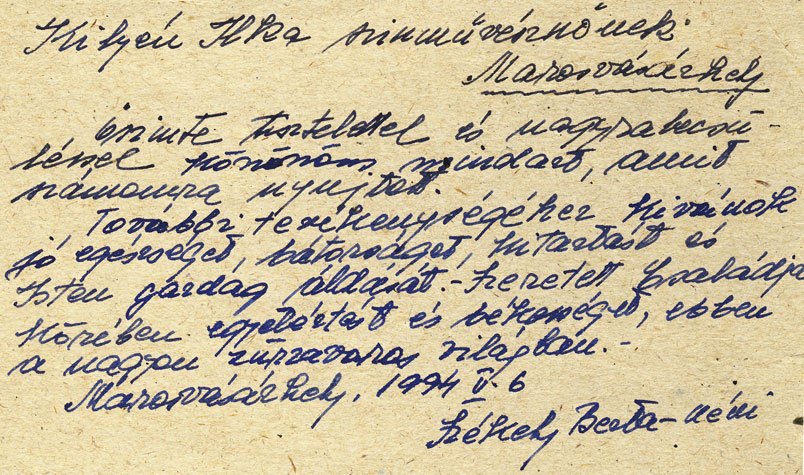 Kilyén Ilka szinművésznőnek
Marosvásárhely
Őszinte tisztelettel és nagyrabecsü-
léssel köszönöm mindazt, amit
számomra nyujtott.
További tevékenységéhez kivánok
jó egészséget, bátorságot, kitartást és
Isten gazdag áldását.- Szeretett Családja
körében egyetértést és békességet, ebben
a nagyon zürzavaros világban.-
Marosvásárhely, 1994 V. 6
Székely Berta-néni